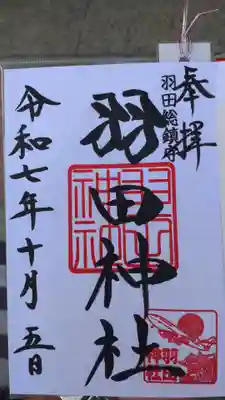 奉拝
羽田総鎮守
羽田神社
令和七年十月五日
羽田神社
羽田神社